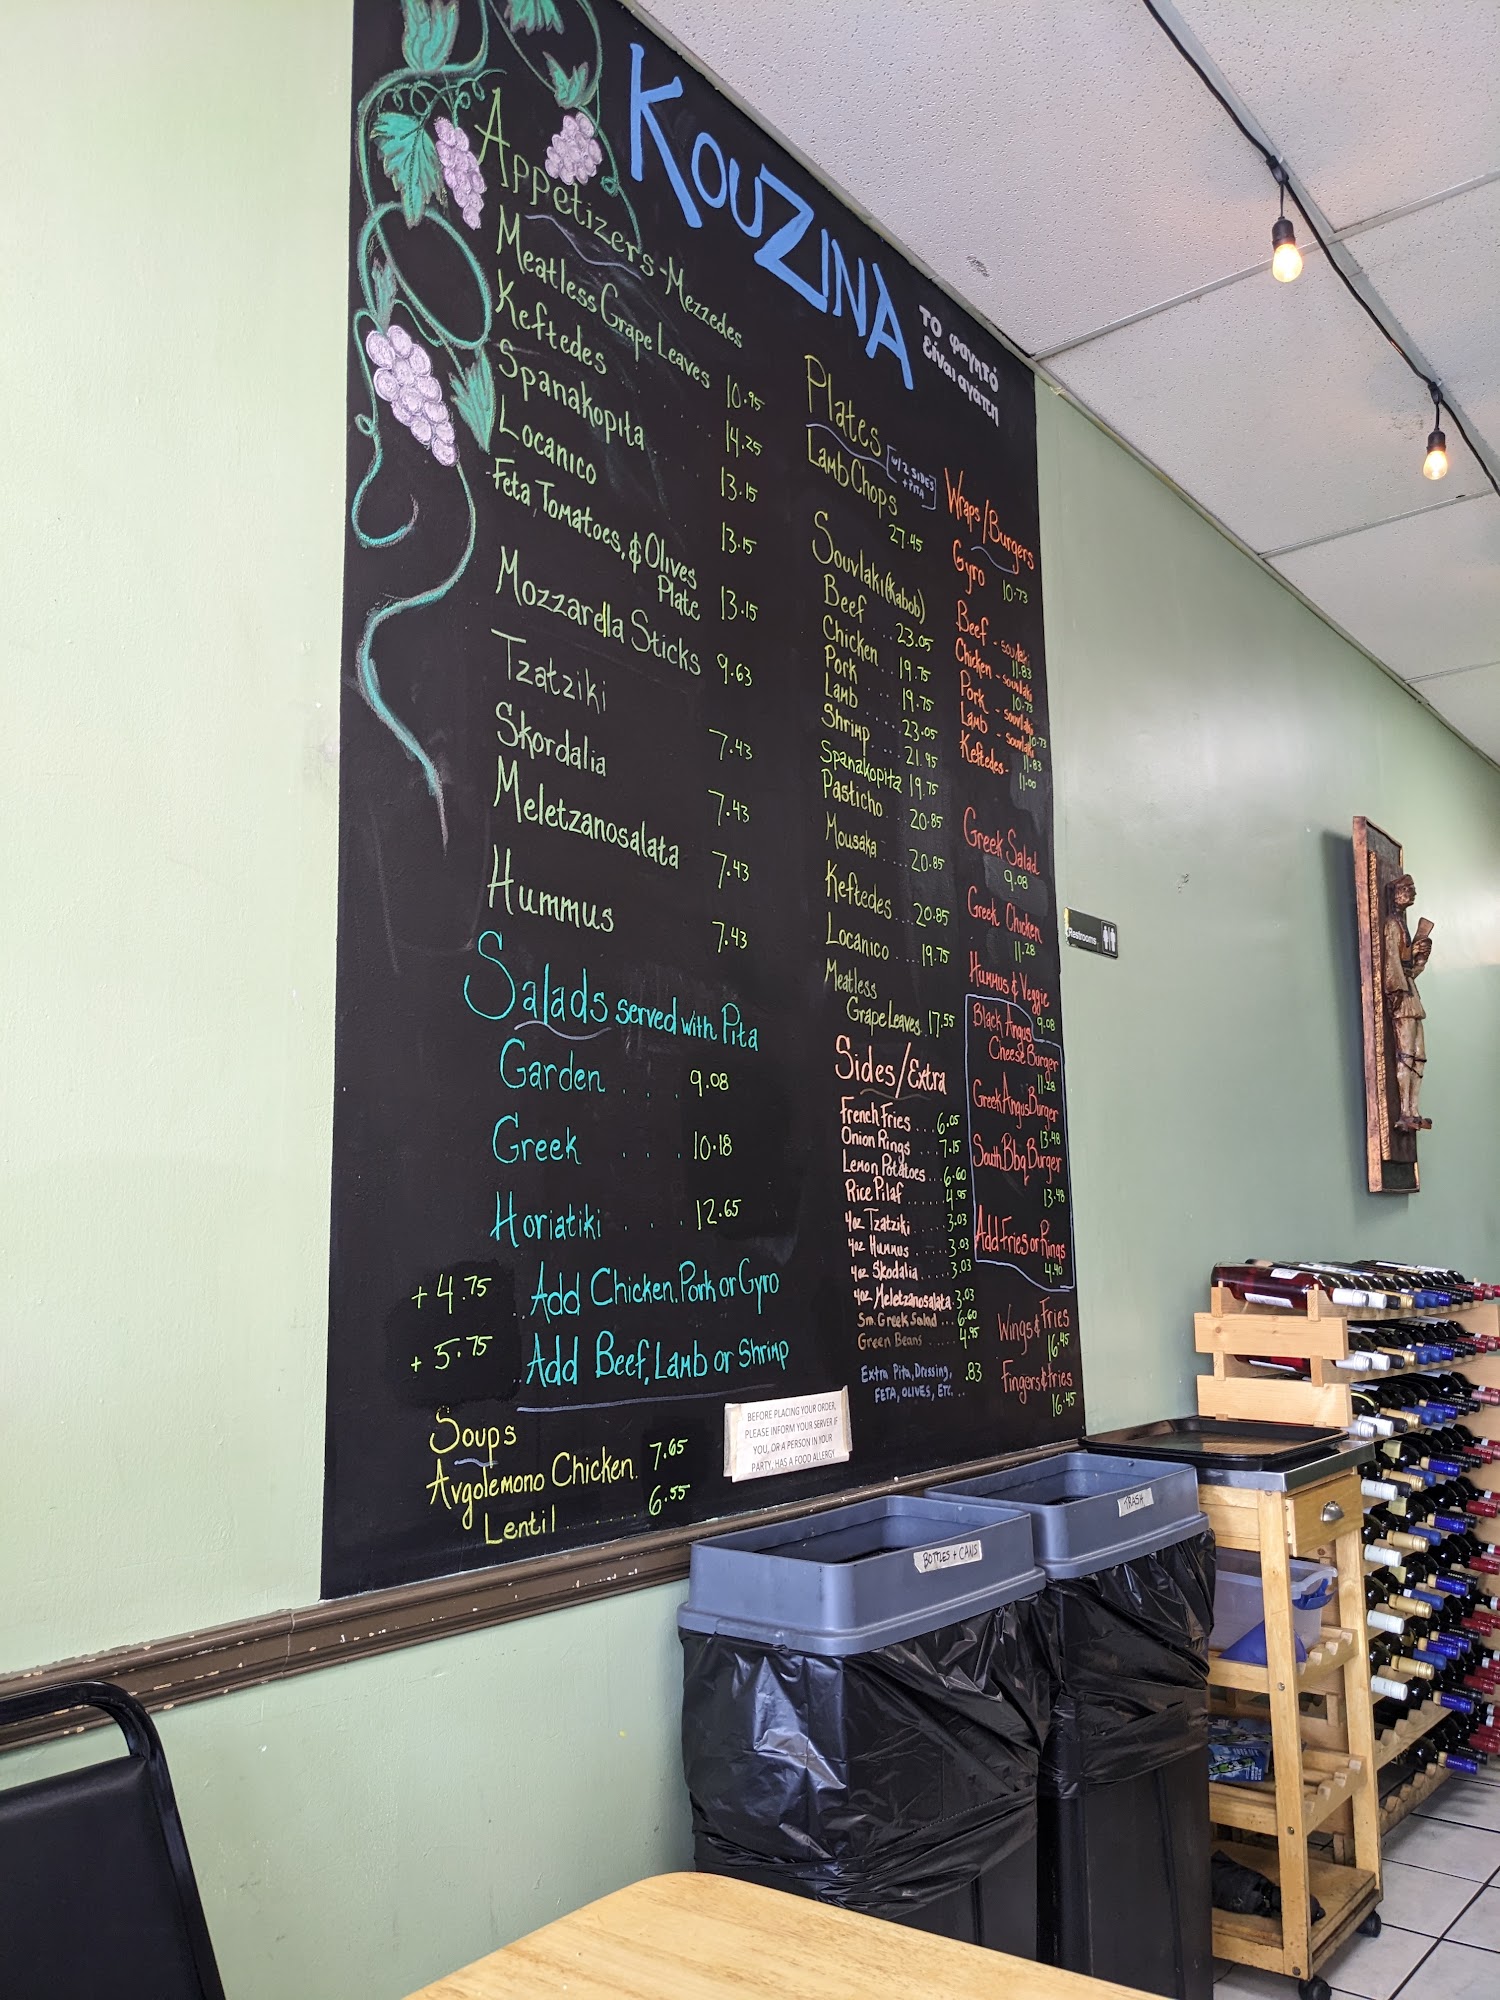 KOUZINA
το φαγητό
είναι αγάπη
Appetizers - Mezzedes
Meatless Grape Leaves 10.95
Keftedes . . . 14.25
Spanakopita . . . . 13.15
Locanico 13.15
Feta, Tomatoes, & Olives
Plate 13.15
Mozzarella Sticks 9.63
Tzatziki 7.43
Skordalia 7.43
Meletzanosalata 7.43
Hummus 7.43
Salads served with Pita
Garden . . . 9.08
Greek . . . 10.18
Horiatiki . . . 12.65
+ 4.75 .. Add Chicken, Pork or Gyro
+ 5.75 .. Add Beef, Lamb or Shrimp
Soups
Avgolemono Chicken. 7.65
Lentil . . . . . . 6.55
BEFORE PLACING YOUR ORDER,
PLEASE INFORM YOUR SERVER IF
YOU, OR A PERSON IN YOUR
PARTY, HAS A FOOD ALLERGY
Plates w/ 2 SIDES
+ PITA
Lamb Chops
27.45
Souvlaki (Kabob)
Beef . . 23.05
Chicken . . 19.75
Pork . . . . 19.75
Lamb . . . . . 23.05
Shrimp . . . . 21.95
Spanakopita 19.75
Pasticho . . . 20.85
Mousaka . . . . 20.85
Keftedes . . . 20.85
Locanico . . . . 19.75
Meatless
Grape Leaves . 17.55
Sides/Extra
French Fries . . . 6.05
Onion Rings . . . . 7.15
Lemon Potatoes . . . 6.60
Rice Pilaf . . . . . 4.95
4oz Tzatziki . . . . . 3.03
4oz Hummus . . . . . 3.03
4oz Skodalia . . . . . 3.03
4oz Meletzanosalata . 3.03
Sm. Greek Salad . . . 6.60
Green Beans . . . . . 4.95
Extra Pita, Dressing, .83
FETA, OLIVES, ETC. . .
Wraps/Burgers
Gyro 10.73
Beef - souvlaki
11.83
Chicken - souvlaki
10.73
Pork - souvlaki
10.73
Lamb - souvlaki
11.83
Keftedes -
11.00
Greek Salad
9.08
Greek Chicken
11.28
Hummus & Veggie
9.08
Black Angus
Cheese Burger
11.28
Greek Angus Burger
13.48
South Bbq Burger
13.48
Add Fries or Rings
4.40
Wings & Fries
16.45
Fingers & Fries
16.45
Restrooms
BOTTLES + CANS
TRASH